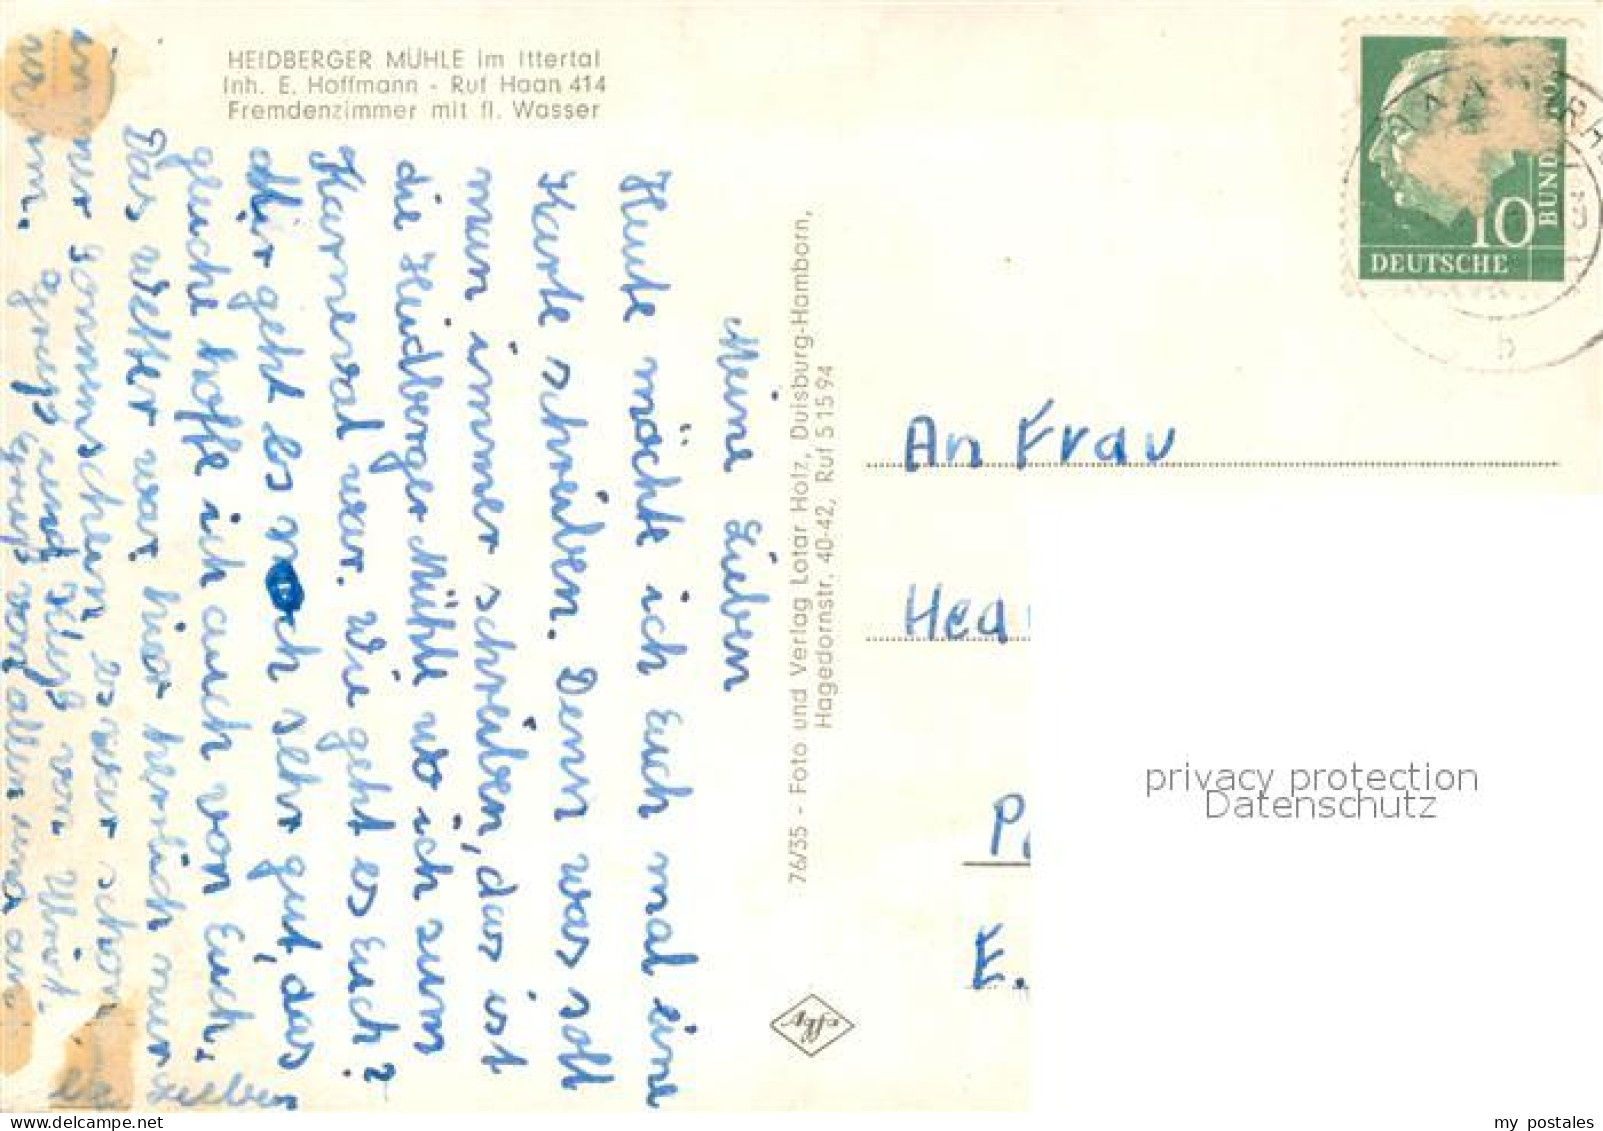 HEIDBERGER MÜHLE im Ittertal
Inh. E. Hoffmann - Ruf Haan 414
Fremdenzimmer mit fl. Wasser
Meine Lieben
Heute möchte ich Euch mal eine
Karte schreiben. Denn was soll
man immer schreiben, das ist
die Heidberger Mühle wo ich zum
Karneval war. Wie geht es Euch?
Mir geht es noch sehr gut, das
gleiche hoffe ich auch von Euch.
Das Wetter war hier herrlich nur
immer Sonnenschein es war schon
warm. Gruß und Kuß von
Gruß von allen und an
lieben
76/35 - Foto und Verlag Lotar Holz, Duisburg-Hamborn,
Hagedornstr. 40-42, Ruf 5 15 94
DEUTSCHE
BUNDESPOST
10
b
An Frau
Hed
P
E.
privacy protection
Datenschutz
my postales